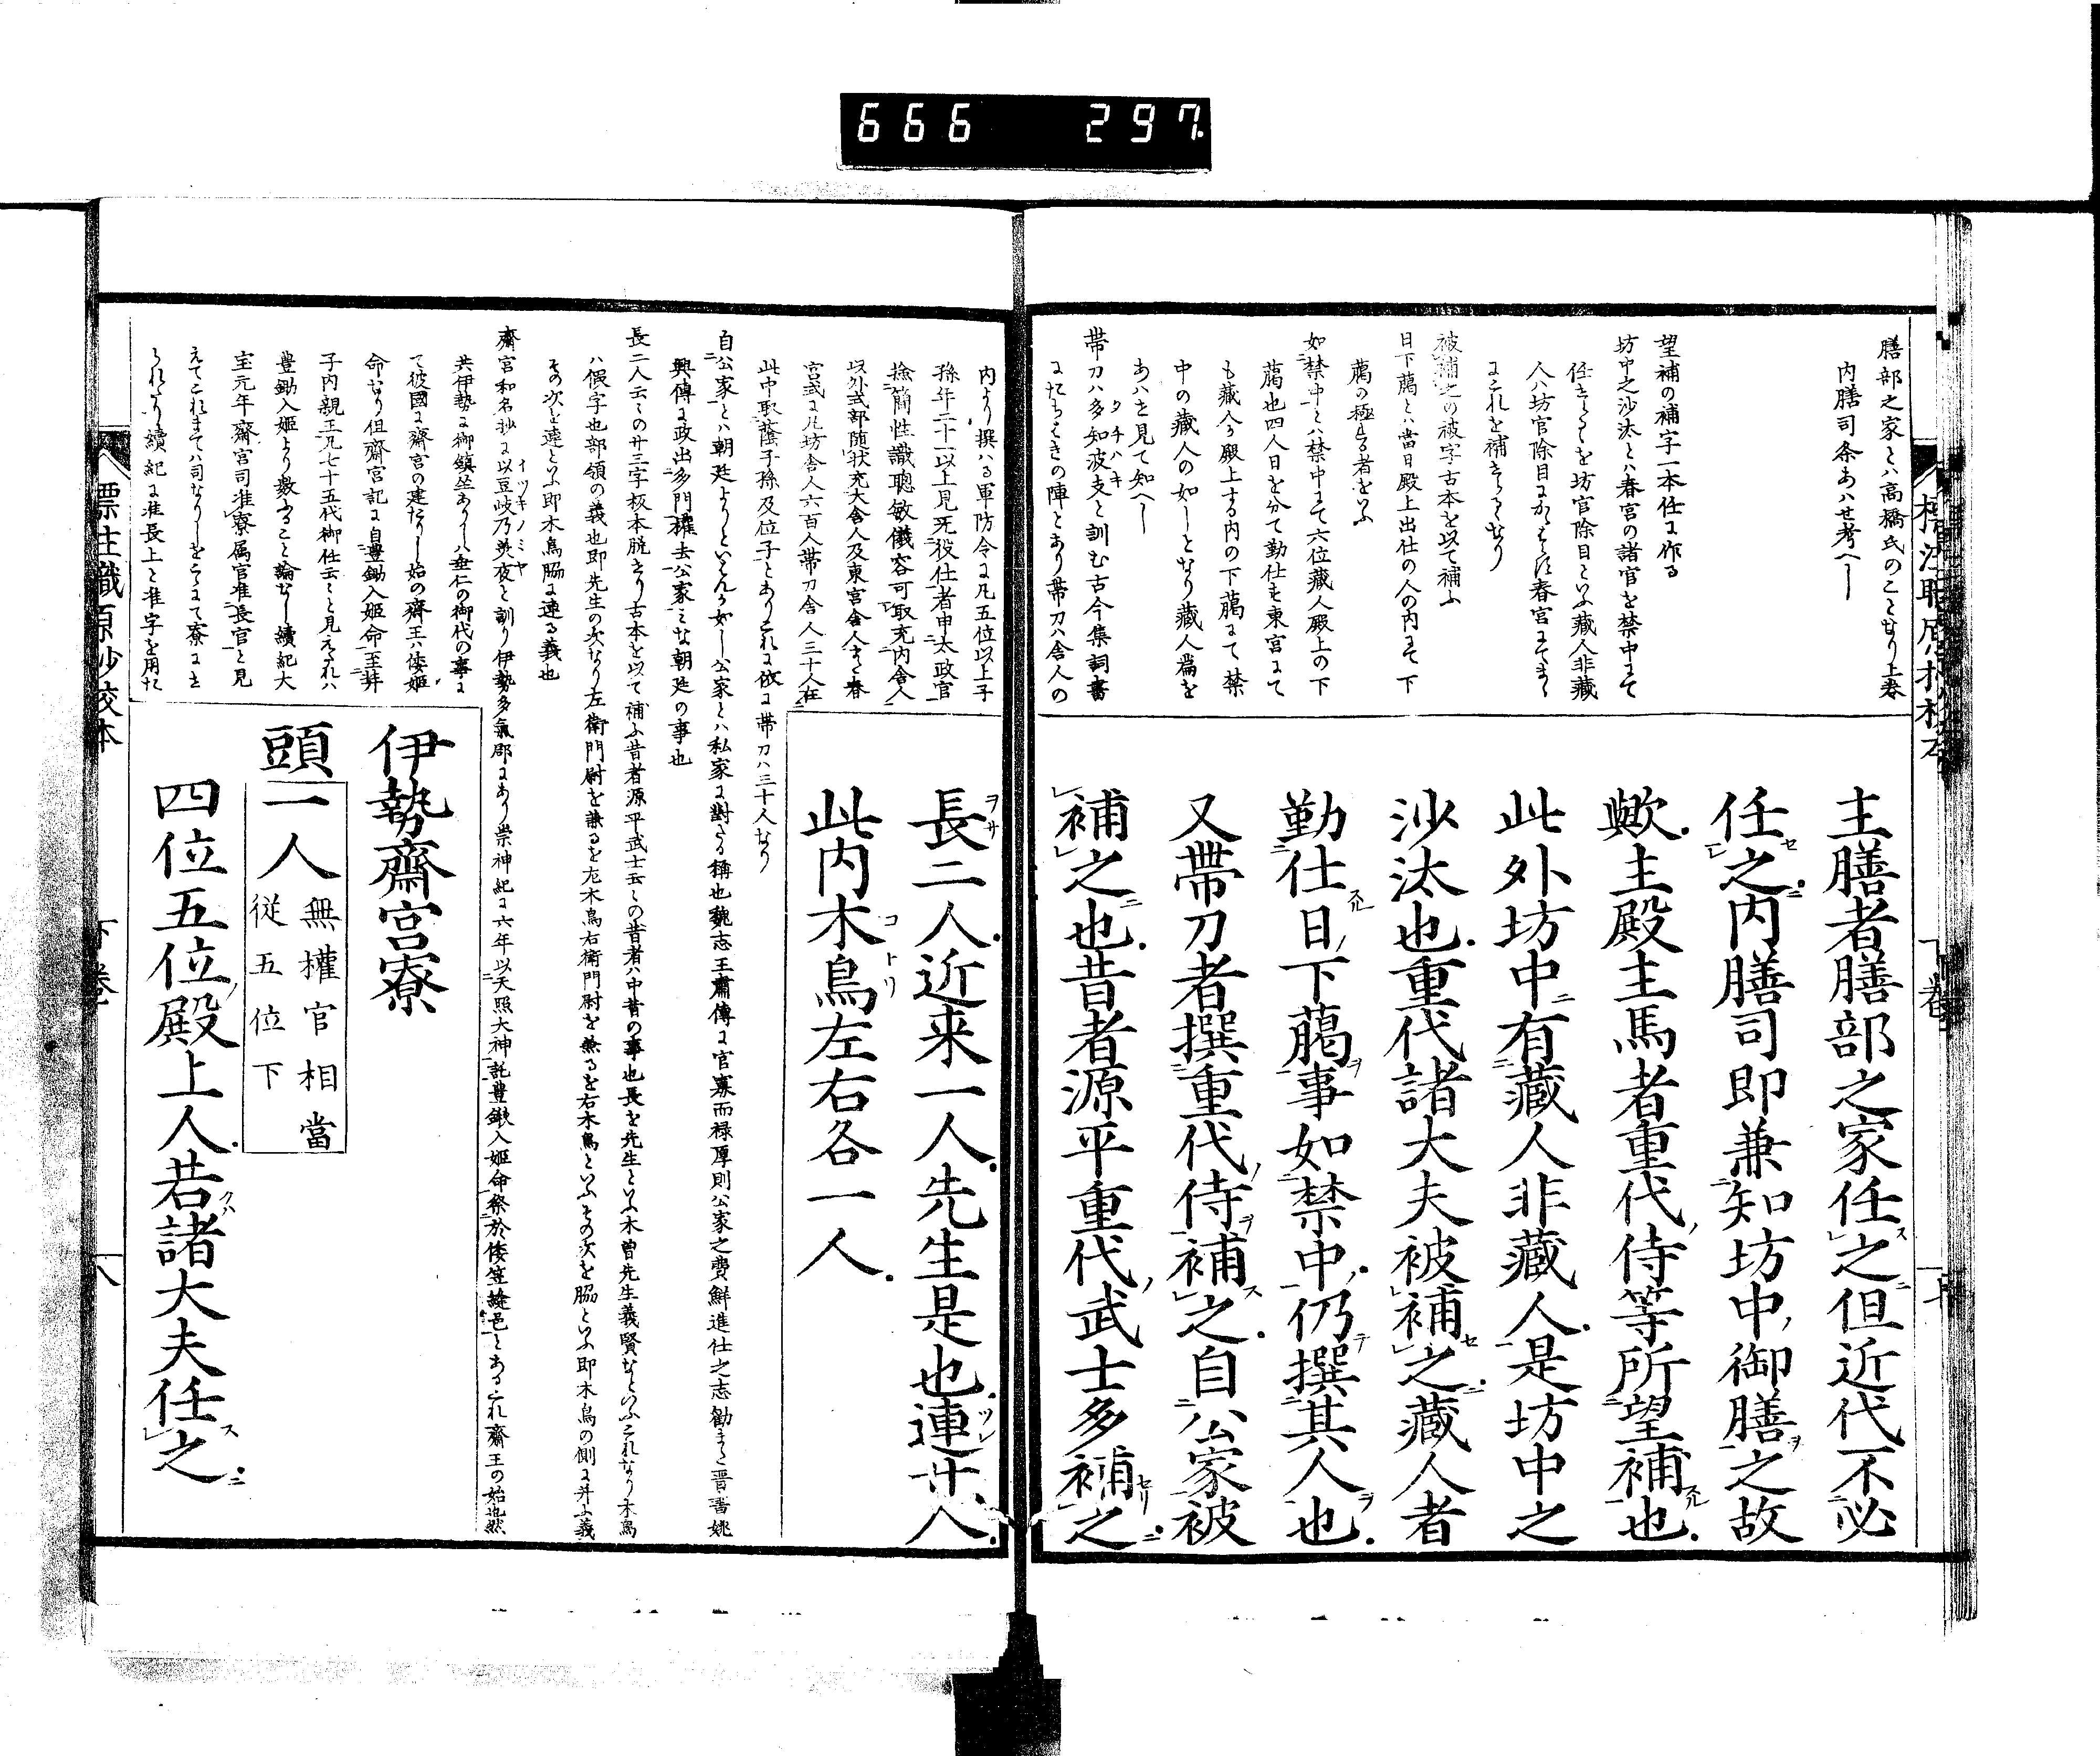 666 297
膳部之家とハ高橋氏のことなり上巻
内膳司条あハせ考へし
望補の補字一本任に作る
坊中之沙汰とハ春宮の諸官を禁中にて
任せらるゝを坊官除目といふ藏人非藏
人ハ坊官除目にかゝはらす春宮にてまゝ
にこれを補せらるゝなり
被補之の被字古本を以て補ふ
日下﨟とハ當日殿上出仕の人の内にて下
﨟の極る者をいふ
如禁中とハ禁中にて六位藏人殿上の下
﨟也四人日を分て勤仕す東宮にて
も藏人ら殿上する内の下﨟にて禁
中の藏人の如しとなり藏人篇を
あハせ見て知へし
帯刀ハ多知波支と訓む古今集詞書
にたちはきの陣とあり帯刀ハ舎人の
主膳者膳部之家任之但近代不必
任之内膳司即兼知坊中御膳之故
歟主殿主馬者重代侍等所望補也
此外坊中有藏人非藏人是坊中之
沙汰也重代諸大夫被補之藏人者
勤仕日下﨟事如禁中仍撰其人也
又帶刀者撰重代侍補之自公家被
補之也昔者源平重代武士多補之
内より撰ハる軍防令に凡五位以上子
孫年二十一以上見无役仕者申太政官
撿簡性識聰敏儀容可取充内舎人
以外式部随状充大舎人及東宮舎人また春
宮式に凡坊舎人六百人帯刀舎人三十人在
此中取蔭子孫及位子とありこれに依に帯刀ハ三十人なり
長二人近来一人先生是也連廿八
此内木鳥左右各一人
自公家とハ朝廷よりといはんか如し公家とハ私家に對する稱也魏志王肅傳に官寡而禄厚則公家之費鮮進仕之志勸また晋書姚
興傳に政出多門權去公家ミな朝廷の事也
長二人云々の廿三字板本脱せり古本を以て補ふ昔者源平武士云々の昔者ハ中昔の事也長を先生といふ木曽先生義賢なといふこれなり木鳥
ハ假字也部領の義也即先生の次なり左衛門尉を兼るを左木鳥右衛門尉を兼るを右木鳥といふその次を脇といふ即木鳥の側に并ふ義
その次を連といふ即木鳥脇に連る義也
齋宮和名抄に以豆岐乃美夜と訓り伊勢多氣郡にあり崇神紀に六年以天照大神託豊鍬入姫命祭於倭笠縫邑とあるこれ齋王の始也然
共伊勢に御鎮坐ありしハ垂仁の御代の事に
て彼國に齋宮の建たりし始の齋王ハ倭姫
命なり但齋宮記に自豊鋤入姫命至祥
子内親王凡七十五代御仕云々と見えたれハ
豊鋤入姫より數ふること論なし續紀大
宝元年齋宮司准寮属官准長官と見
えてこれまてハ司なりしをこゝにて寮にせ
られたり續紀に准長上と准字を用た
伊勢齋宮寮
頭一人 無權官相當
従五位下
四位五位殿上人若諸大夫任之
標注職原抄校本 下巻 八